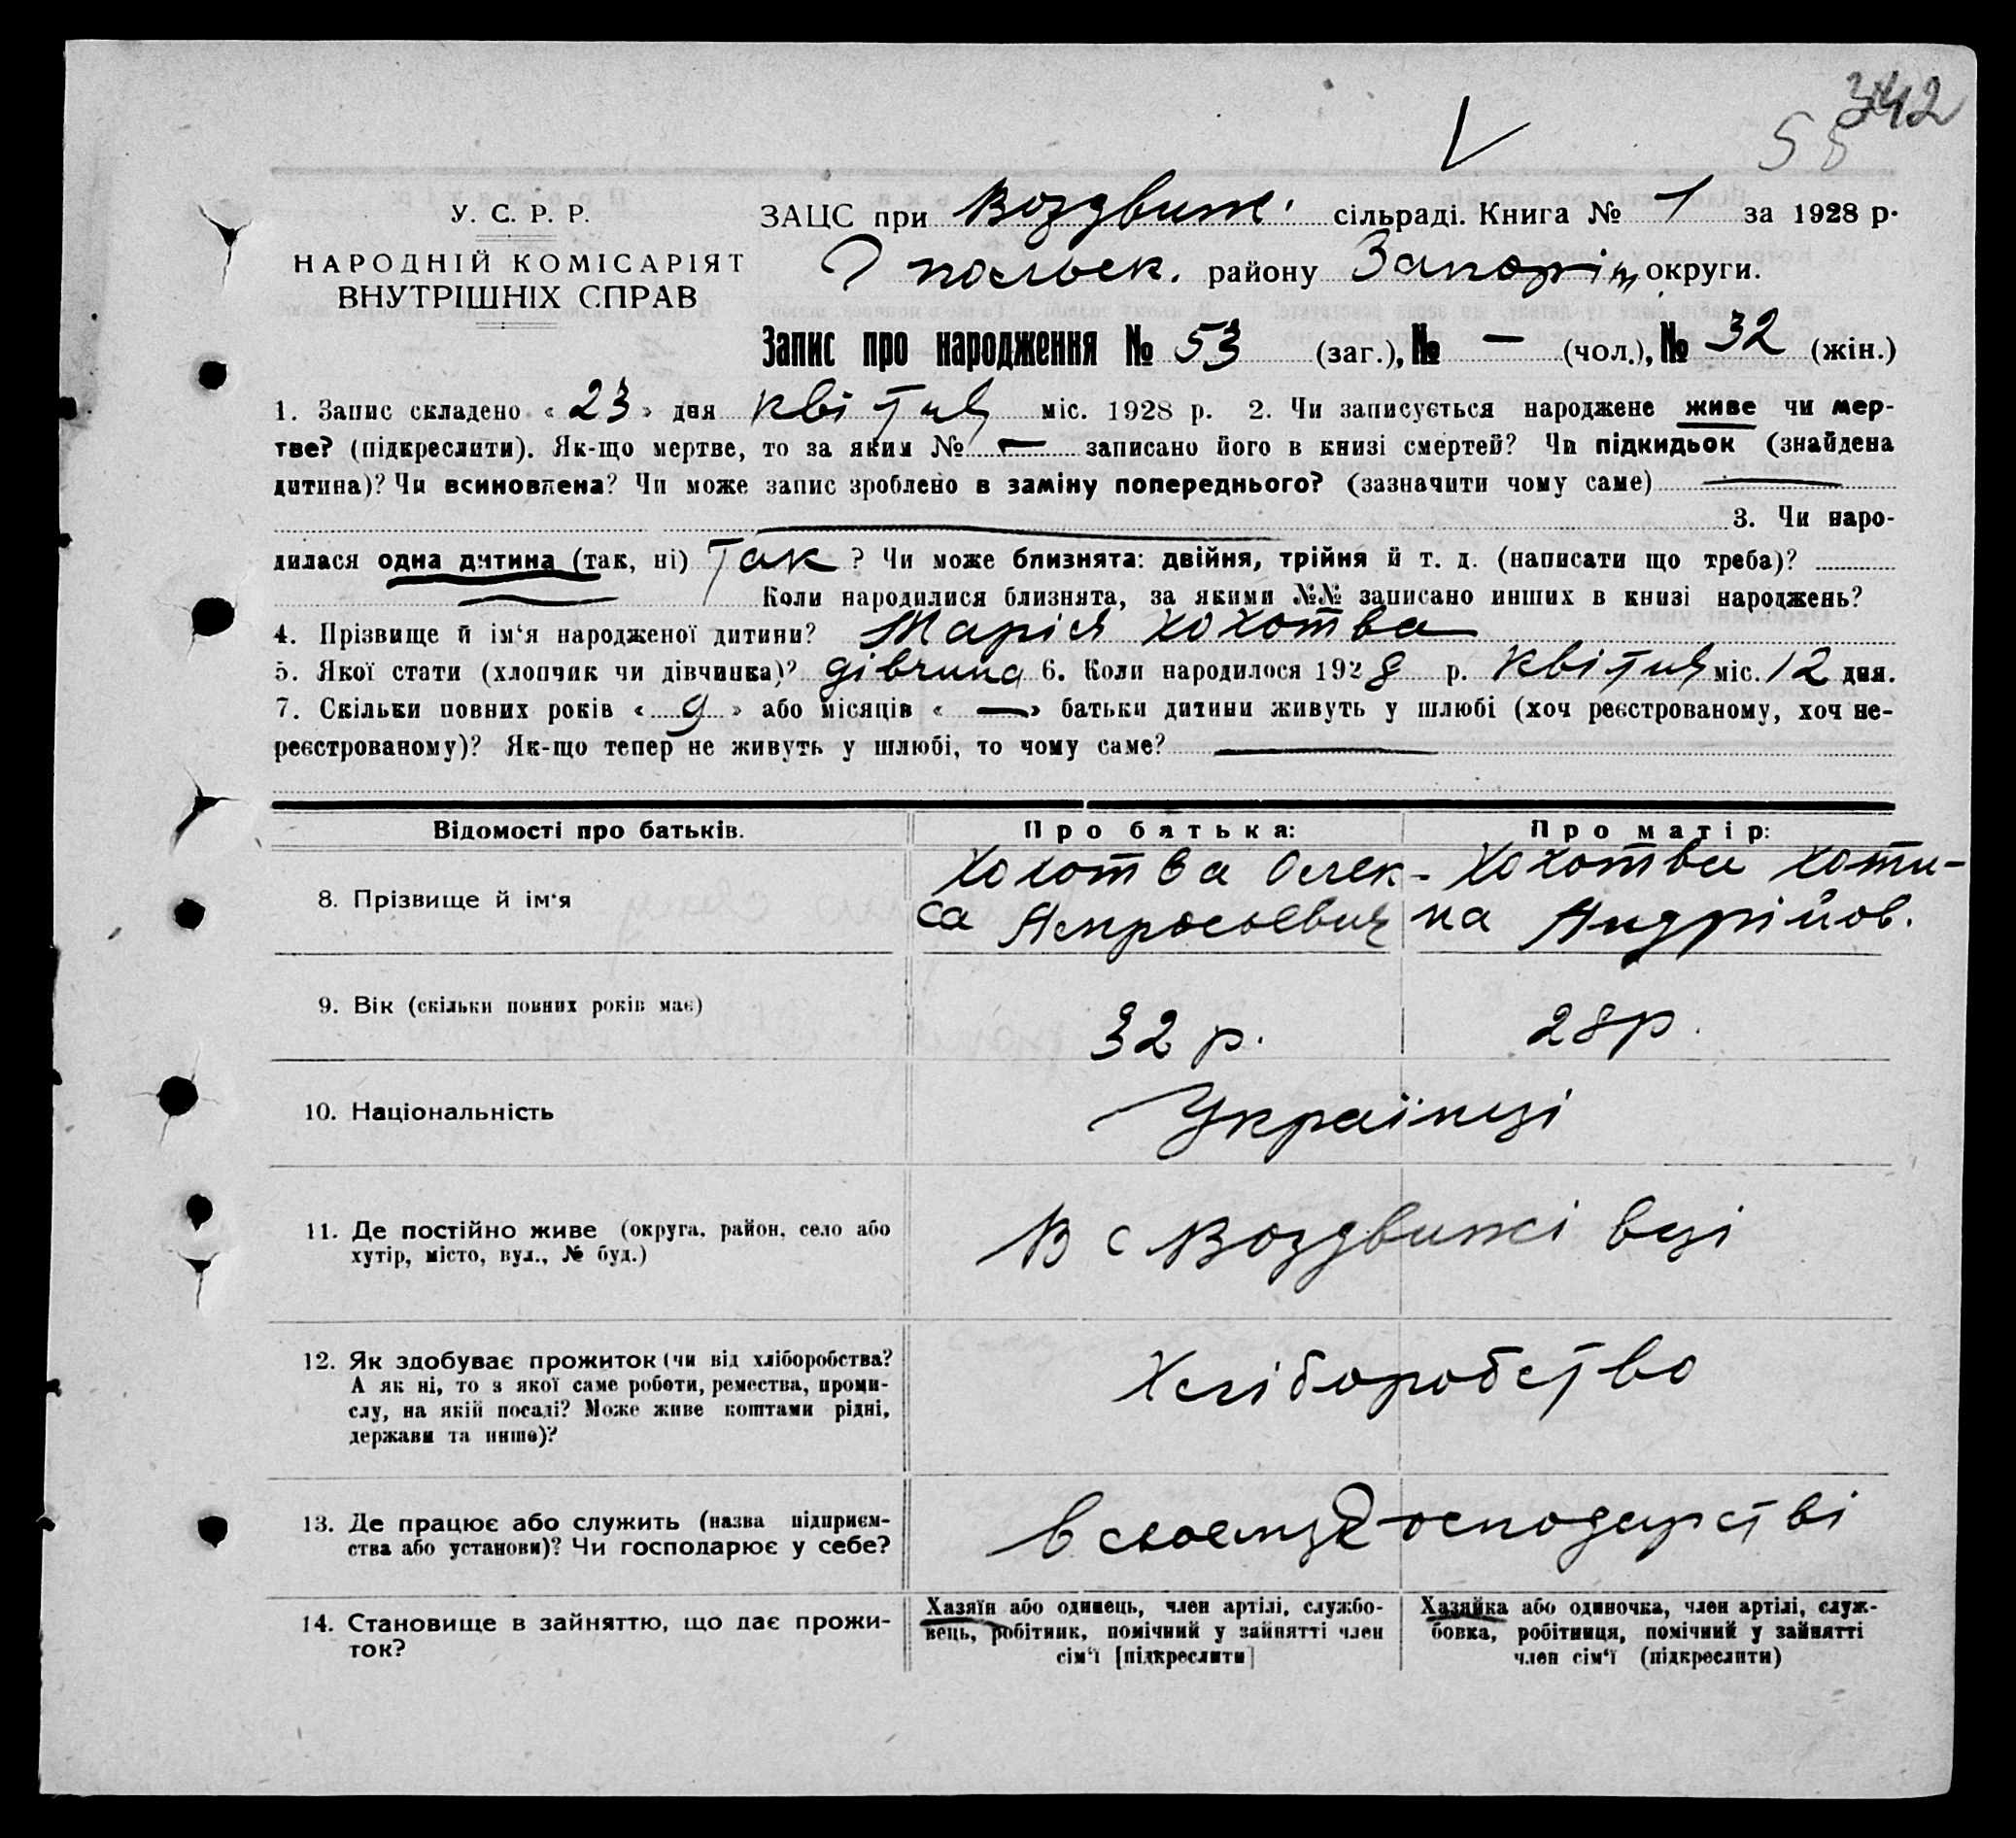 342
55
У. С. Р. Р.
НАРОДНІЙ КОМІСАРІЯТ
ВНУТРІШНІХ СПРАВ
ЗАЦС при Воздвиж. сільраді. Книга № 1 за 1928 р.
Гпольськ. району Запоріж. округи.
Запис про народження № 53 (заг.), № — (чол.), № 32 (жін.)
1. Запис складено « 23 » дня квітня міс. 1928 р. 2. Чи записується народжене живе чи мер-
тве? (підкреслити). Як-що мертве, то за яким № — записано його в книзі смертей? Чи підкидьок (знайдена
дитина)? Чи всиновлена? Чи може запис зроблено в заміну попереднього? (зазначити чому саме) —
3. Чи наро-
дилася одна дитина (так, ні) Так ? Чи може близнята: двійня, трійня й т. д. (написати що треба)?
— Коли народилися близнята, за якими №№ записано инших в книзі народжень?
4. Прізвище й ім‘я народженої дитини? Марія Хохотва
5. Якої стати (хлопчик чи дівчинка)? дівчина 6. Коли народилося 1928 р. квітня міс. 12 дня.
7. Скільки повних років « 9 » або місяців « — » батьки дитини живуть у шлюбі (хоч реєстрованому, хоч не-
реєстрованому)? Як-що тепер не живуть у шлюбі, то чому саме? —
Відомості про батьків.
Про батька:
Про матір:
8. Прізвище й ім‘я
Хохотва Олек-
са
Хохотва Хоти-
на Андрійов.
9. Вік (скільки повних років має)
32 р.
28 р.
10. Національність
Українці
11. Де постійно живе (округа, район, село або
хутір, місто, вул., № буд.)
В с Воздвижівці
12. Як здобуває прожиток (чи від хліборобства?
А як ні, то з якої саме роботи, ремества, проми-
слу, на якій посаді? Може живе коштами рідні,
держави та инше)?
Хліборобство
13. Де працює або служить (назва підприєм-
ства або установи)? Чи господарює у себе?
В своєму Господарстві
14. Становище в зайняттю, що дає прожи-
ток?
Хазяїн або одинець, член артілі, службо-
вець, робітник, помічний у зайнятті член
сім‘ї [підкреслити]
Хазяйка або одиночка, член артілі, служ-
бовка, робітниця, помічний у зайнятті
член сім‘ї (підкреслити)